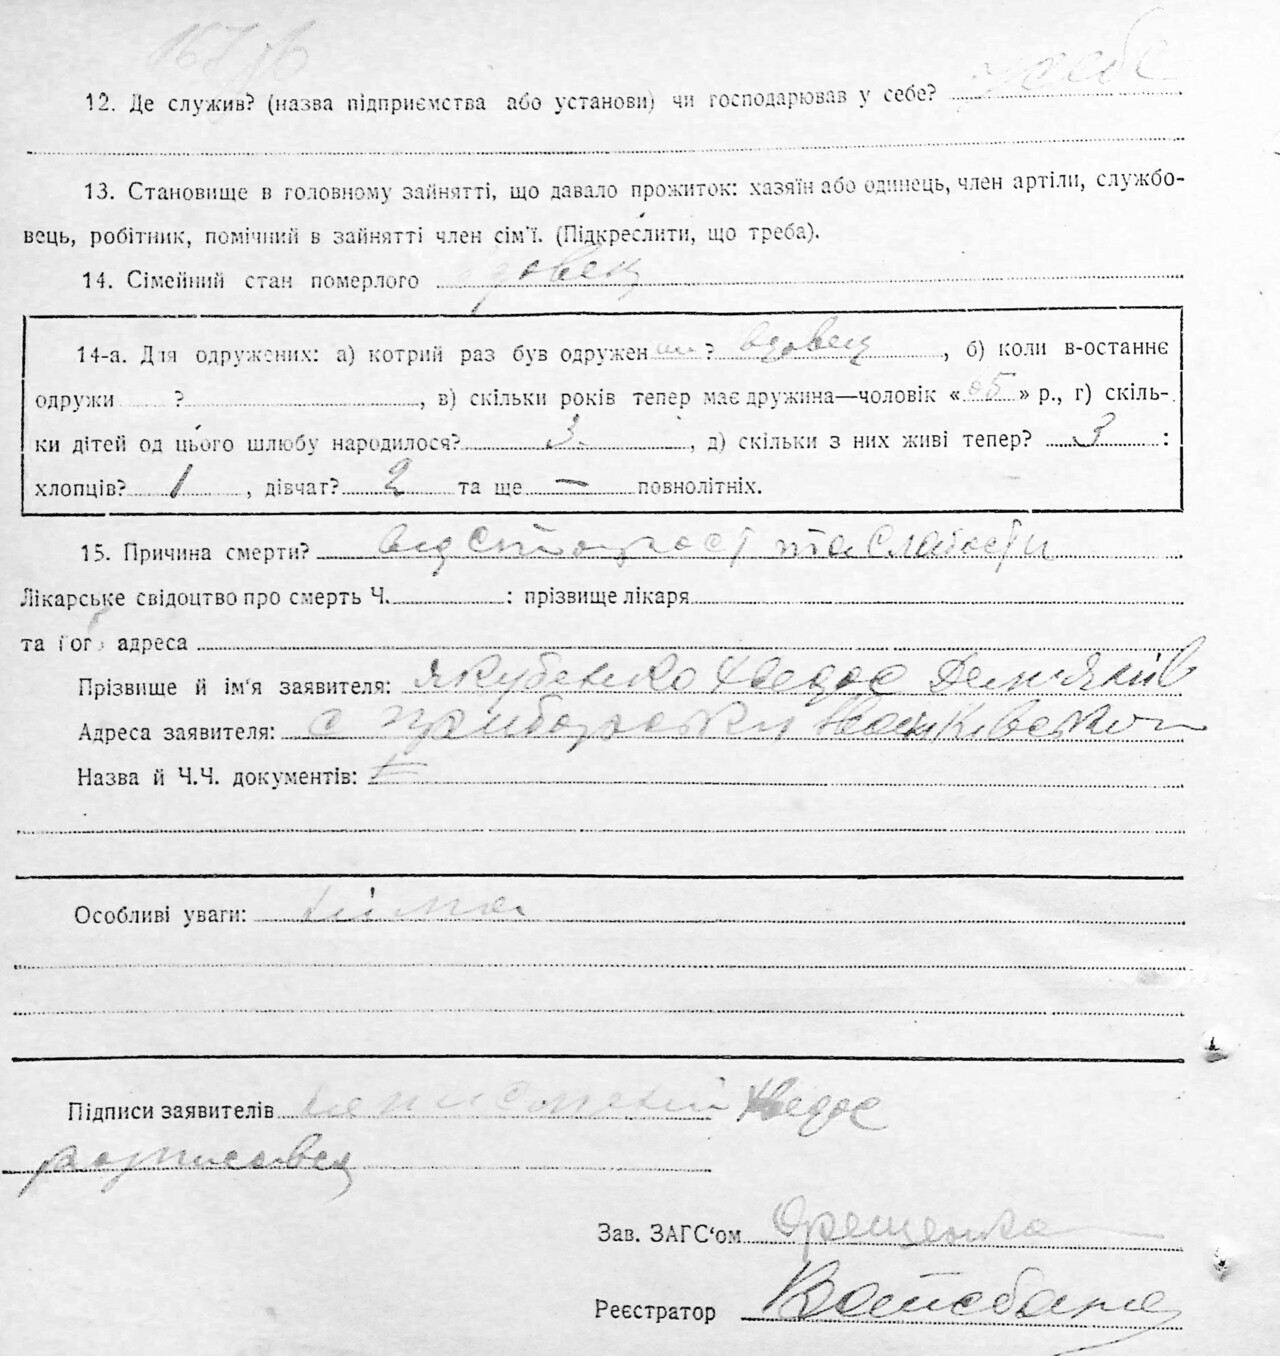 12. Де служив? (назва підприємства або установи) чи господарював у себе? у себе
13. Становище в головному зайнятті, що давало прожиток: хазяїн або одинець, член артіли, службо-
вець, робітник, помічний в зайнятті член сім'ї. (Підкреслити, що треба).
14. Сімейний стан померлого вдовец
14-а. Для одружених: а) котрий раз був одружен ? вдовец , б) коли в-останнє
одружи ? , в) скільки років тепер має дружина—чоловік « » р., г) скіль-
ки дітей од цього шлюбу народилося? 3. , д) скільки з них живі тепер? 3 :
хлопців? 1 , дівчат? 2 та ще — повнолітніх.
15. Причина смерти? від старост та слабости
Лікарське свідоцтво про смерть Ч. : прізвище лікаря
та його адреса
Прізвище й ім'я заявителя: Якубенко Хведос Дем'янів
Адреса заявителя: с Приборськи Іванківського
Назва й Ч.Ч. документів:
Особливі уваги: німа
Підписи заявителів неписменій Хведос
розписавец
Зав. ЗАГС'ом
Реєстратор